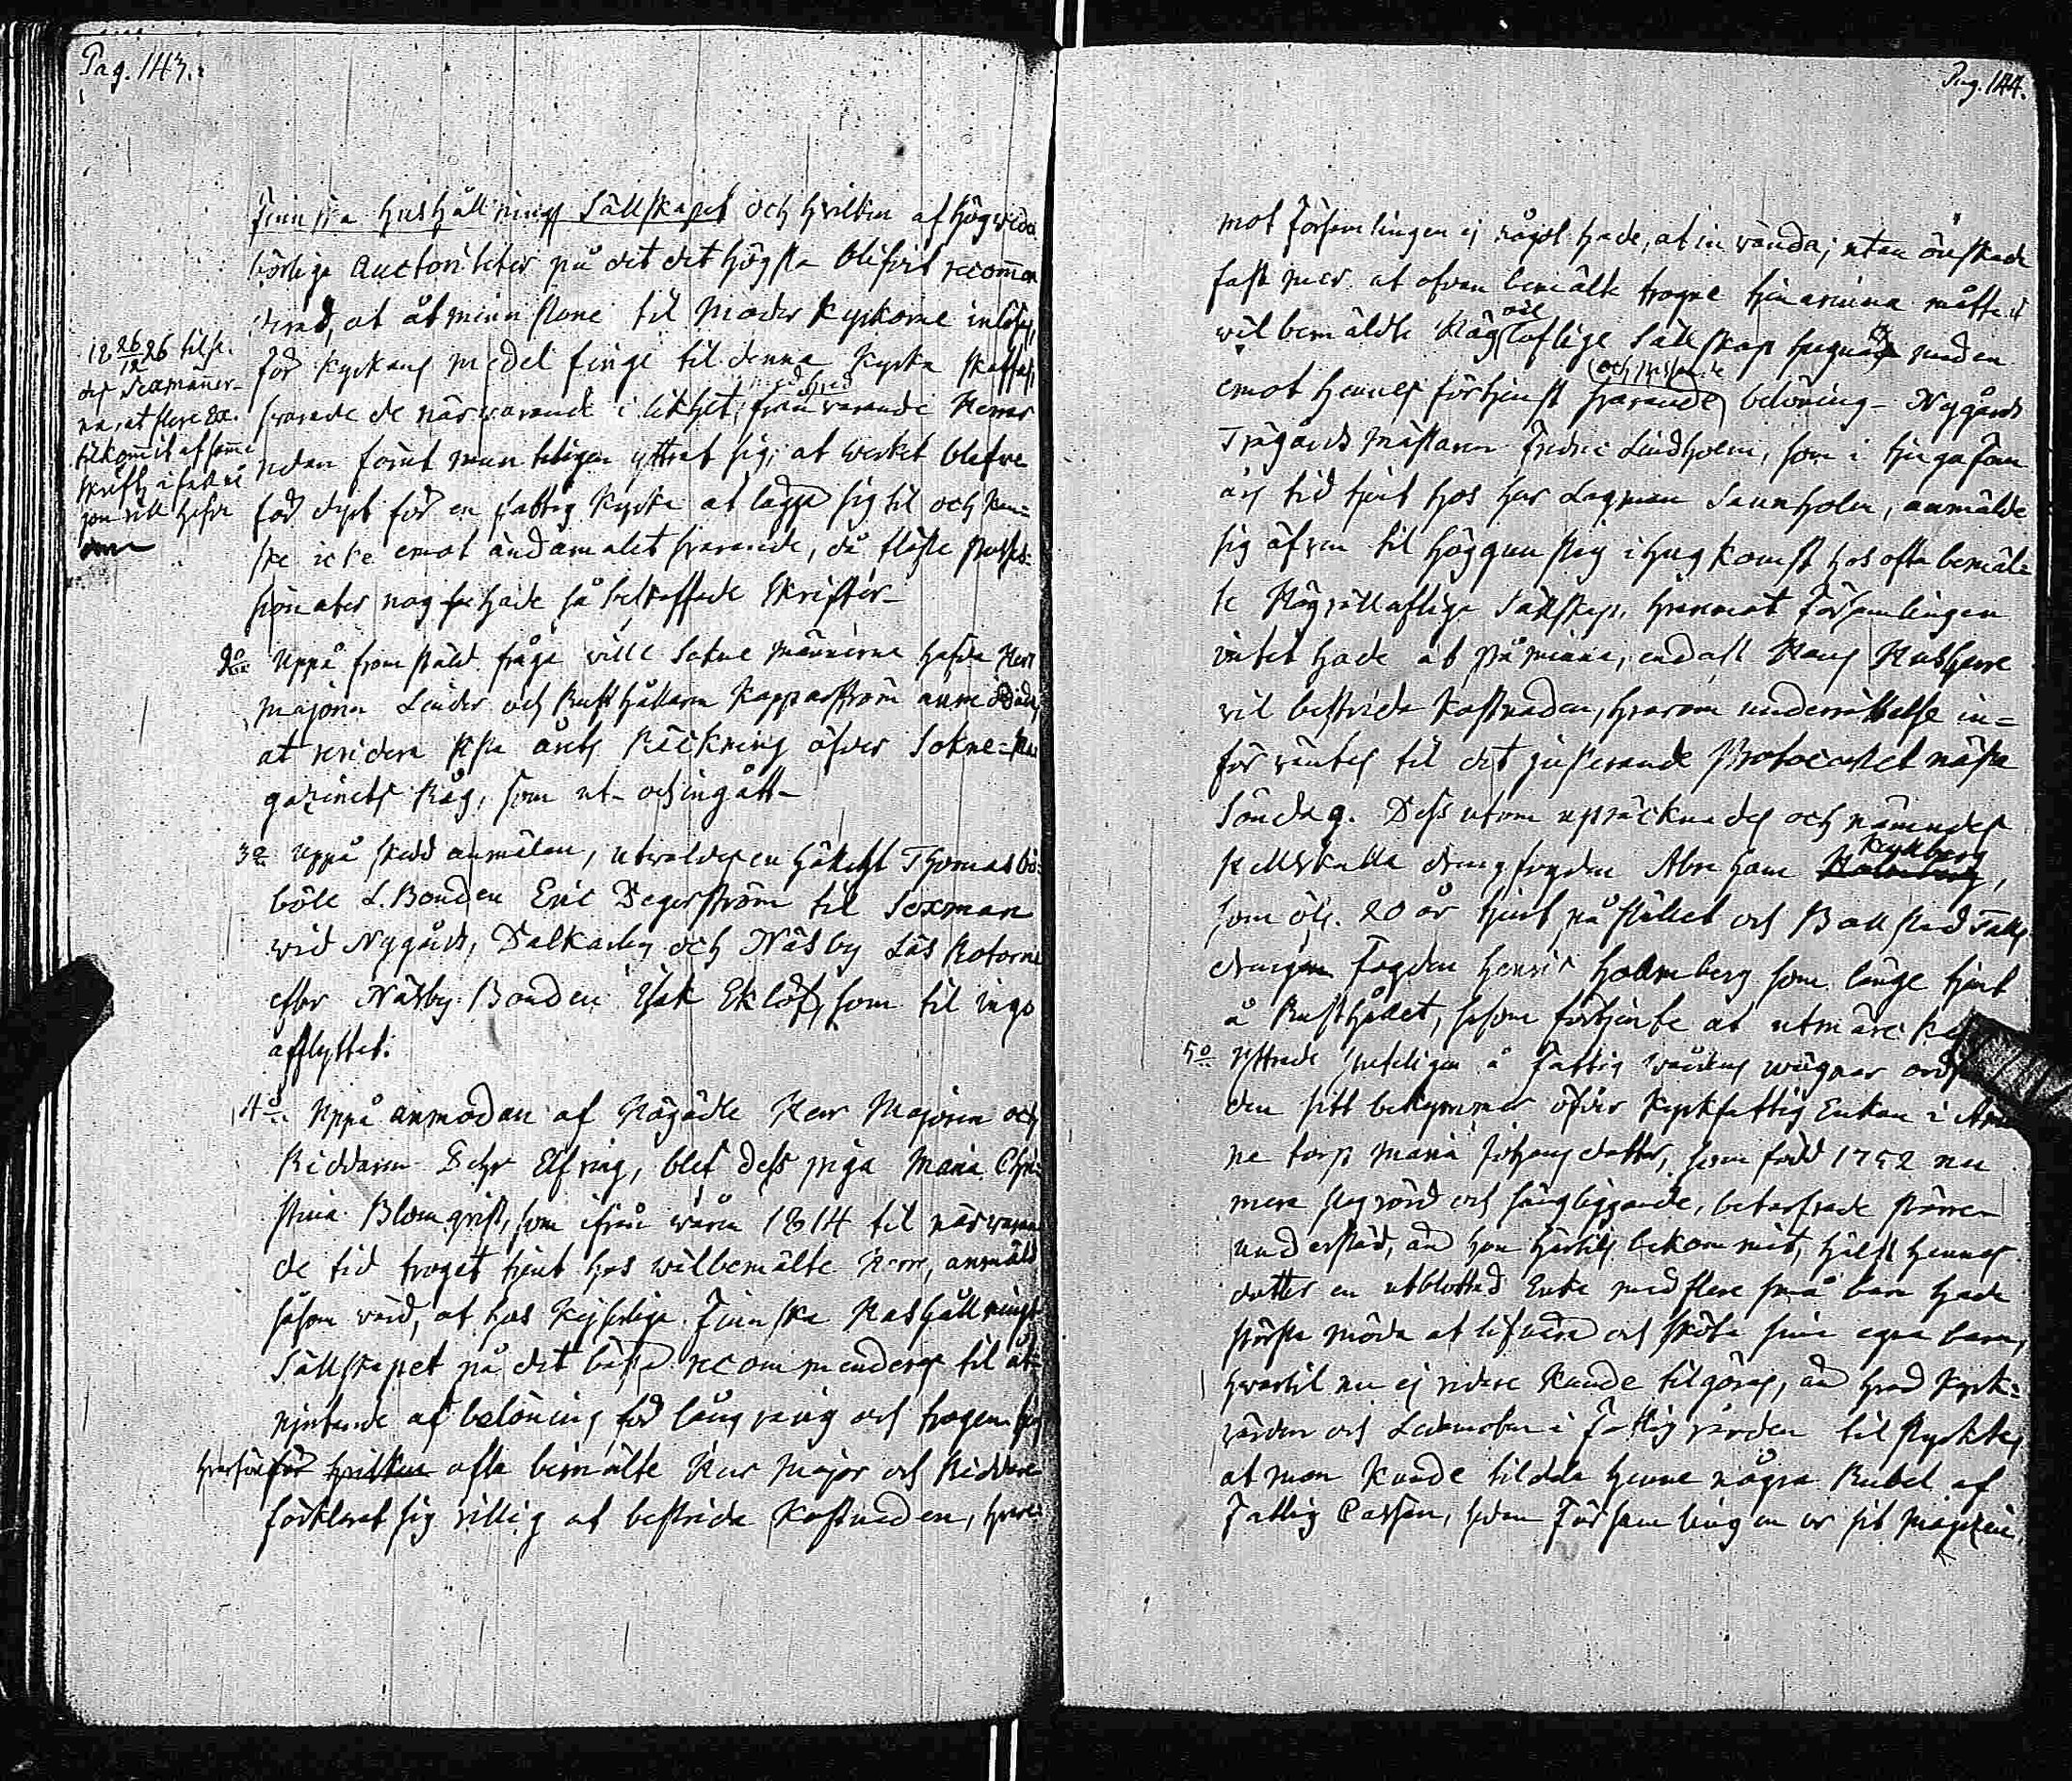 Pag. 143.
Finnska Hushållnings Sällskapet och hvilken af högveder
börlige Auctoriteter på det det högsta blifvit recommen
derad, at åtminstone til Moder Kyrkorne inlösas,
för kyrkans medel finge til denna Kyrka skaffas,
svarade de närvarande i likhet, från varande Herrar
redan förut munteligen yttrat sig, at verket blefve
för dyrt för en fattig Kyrka at lägga sig til och kan-
ske icke emot ändamålet svarande, då fläste
sionater nog hade så beskaffade Skrifter-
18 26/12 26 tilse.
des Sexmänner-
na, at flere Ex.
tilkommit af samma
skrift i
som vill hafva
2o Uppå framstäld fråga ville Sokne männerne hafva Herr
Majoren Linder och Rusthållaren Kapparström anmodade,
at revidera sista årets Räckning öfver Sokne-Ma
gazinets Råg, som ut- och ingått-
3o Uppå skedd anmälan, utvaldes en häkest Thomasbö-
böle L. Bonden Eric Degerström til Sexman
vid Nygårds, Dalkarby och Näsby Läs Rotorne
efter Näsby Bonden Isak Eklöf, som til Ingo
afflyttet.
4o. Uppå anmodan af Högädle Herr Majoren och
Riddaren Dehr Elfving, blef dess piga Maria Chri-
stina Blomqvist, som ifrån våren 1814 til närvaran
de tid troget tjent hos wälbemälte Herre, anmäld
såsom värd, at hos Kejserliga Finnska Hushållnings
Sällskapet på det bästa recommenderas til åt-
njutande af belöning för långvarig och trogen
hvarföre för hvilken ofta bemälte Herr Major och Riddare
förklarat sig villig at bestrida Kostnaden, hvare
Pag. 144.
mot Församlingen ej något hade, at invända; utan önskade
fast mer at ofvan bemälte trogne tjenarinna måtte af
wil bemäldte Hög wil loflige Sällskap hugnas med en
emot hennes förtjenst svarande (och passande) belöning - Nygårds
Trägårds Mästaren Fredric Lindholm, som i tjugufem
års tid tjent hos Herr Lagman Saunholm, anmälde
sig äfven til höggunstig ihugkomst hos ofta bemäl-
te Höglofliga Sällskap, hvaremot Församlingen
intet hade at påminna, endast Hans Husherre
vil bestrida Kostnaden, hvarom underrättelse in-
för väntes til det justerande Protocollet nästa
Söndag. Dess utom upräcknades och nämndes
drengfogden Abraham Holmberg Kullberg,
som öfr. 20 år tjent på stället och Ballstad
drengen Fogden Henric Holmberg som länge tjent
å Rusthållet, såsom förtjente at utmärc
5o Yttrade å Fattig vårdens vägnar
den sitt bekymmer öfver Kyrkfattig Enkan i
ne torp Maria Johansdotter, som född 1752 nu
mera slagrörd och sängliggande, betarfvade större
understöd, än hon härtils bekommit, hälst hennes
dotter en utblottad Enka med flere små barn hade
största möda at lifnära och sköta sina egna barn,
hvartil nu ej vidare kunde tilgöras, än hvad Kyrk-
värden och Ledamoten i Fattigvården til styrkte,
at man kunde tildela henne några Rubel af
Fattig Cassan, sedan Församlingen ur sit Magazin